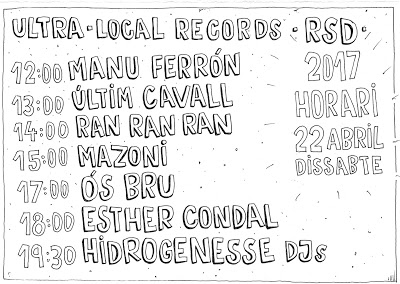 ULTRA-LOCAL RECORDS · RSD ·
2017
HORARI
22 ABRIL
DISSABTE
12:00 MANU FERRÓN
13:00 ÚLTIM CAVALL
14:00 RAN RAN RAN
15:00 MAZONI
17:00 ÓS BRU
18:00 ESTHER CONDAL
19:30 HIDROGENESSE DJs